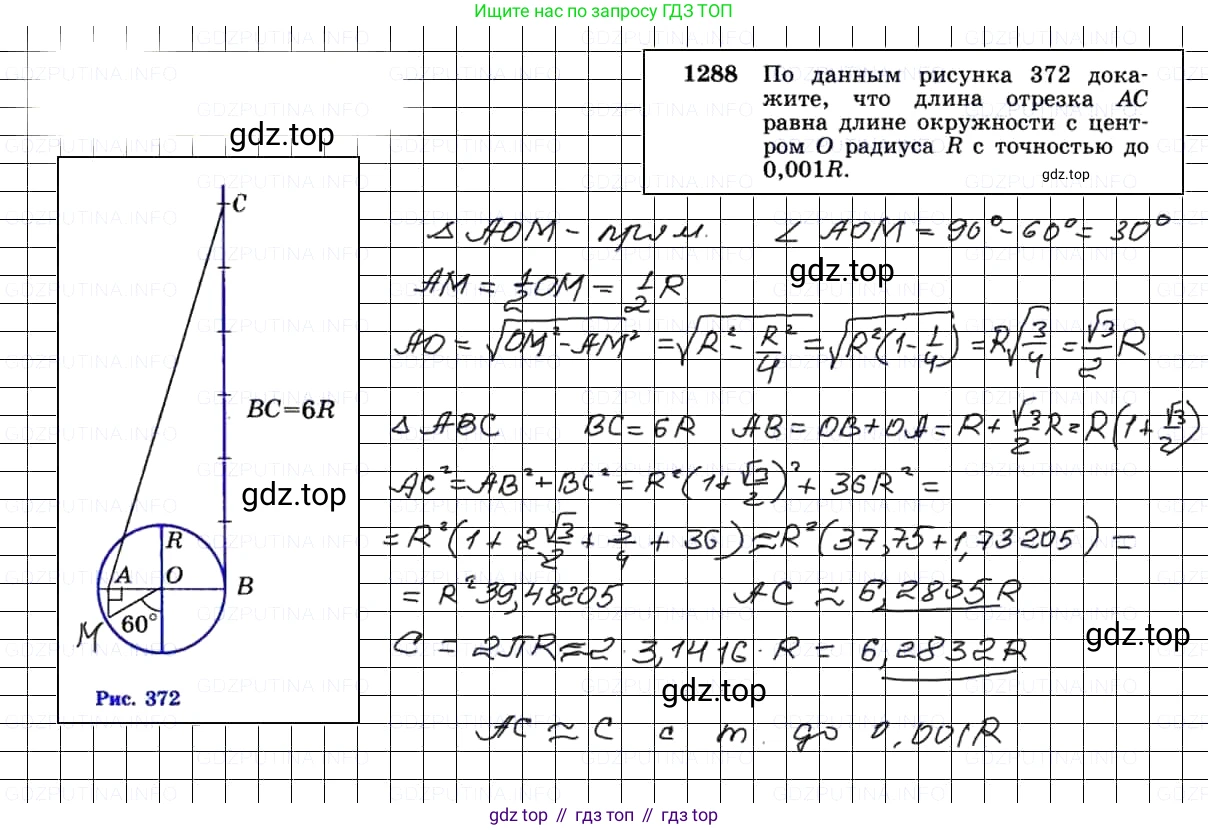 Ищите нас по запросу ГДЗ ТОП
1288 По данным рисунка 372 дока-
жите, что длина отрезка AC
равна длине окружности с цент-
ром O радиуса R с точностью до
0,001R.
gdz.top
gdz.top
C
BC=6R
gdz.top
R
A O B
M 60°
Рис. 372
△ AOM - прям. ∠ AOM = 90° - 60° = 30°
gdz.top
AM = 1/2 OM = 1/2 R
AO = √(OM² - AM²) = √(R² - R²/4) = √(R²(1 - 1/4)) = R√(3/4) = √3/2 R
△ ABC BC = 6R AB = OB + OA = R + √3/2 R = R(1 + √3/2)
AC² = AB² + BC² = R²(1 + √3/2)² + 36R² =
= R²(1 + 2 √3/2 + 3/4 + 36) ≈ R²(37,75 + 1,73205) =
= R² 39,48205 AC ≈ 6,2835R
gdz.top
C = 2πR ≈ 2 · 3,1416 · R = 6,2832R
gdz.top
AC ≈ C с т. до 0,001R
gdz top // гдз топ // gdz top
GDZPUTINA.INFO